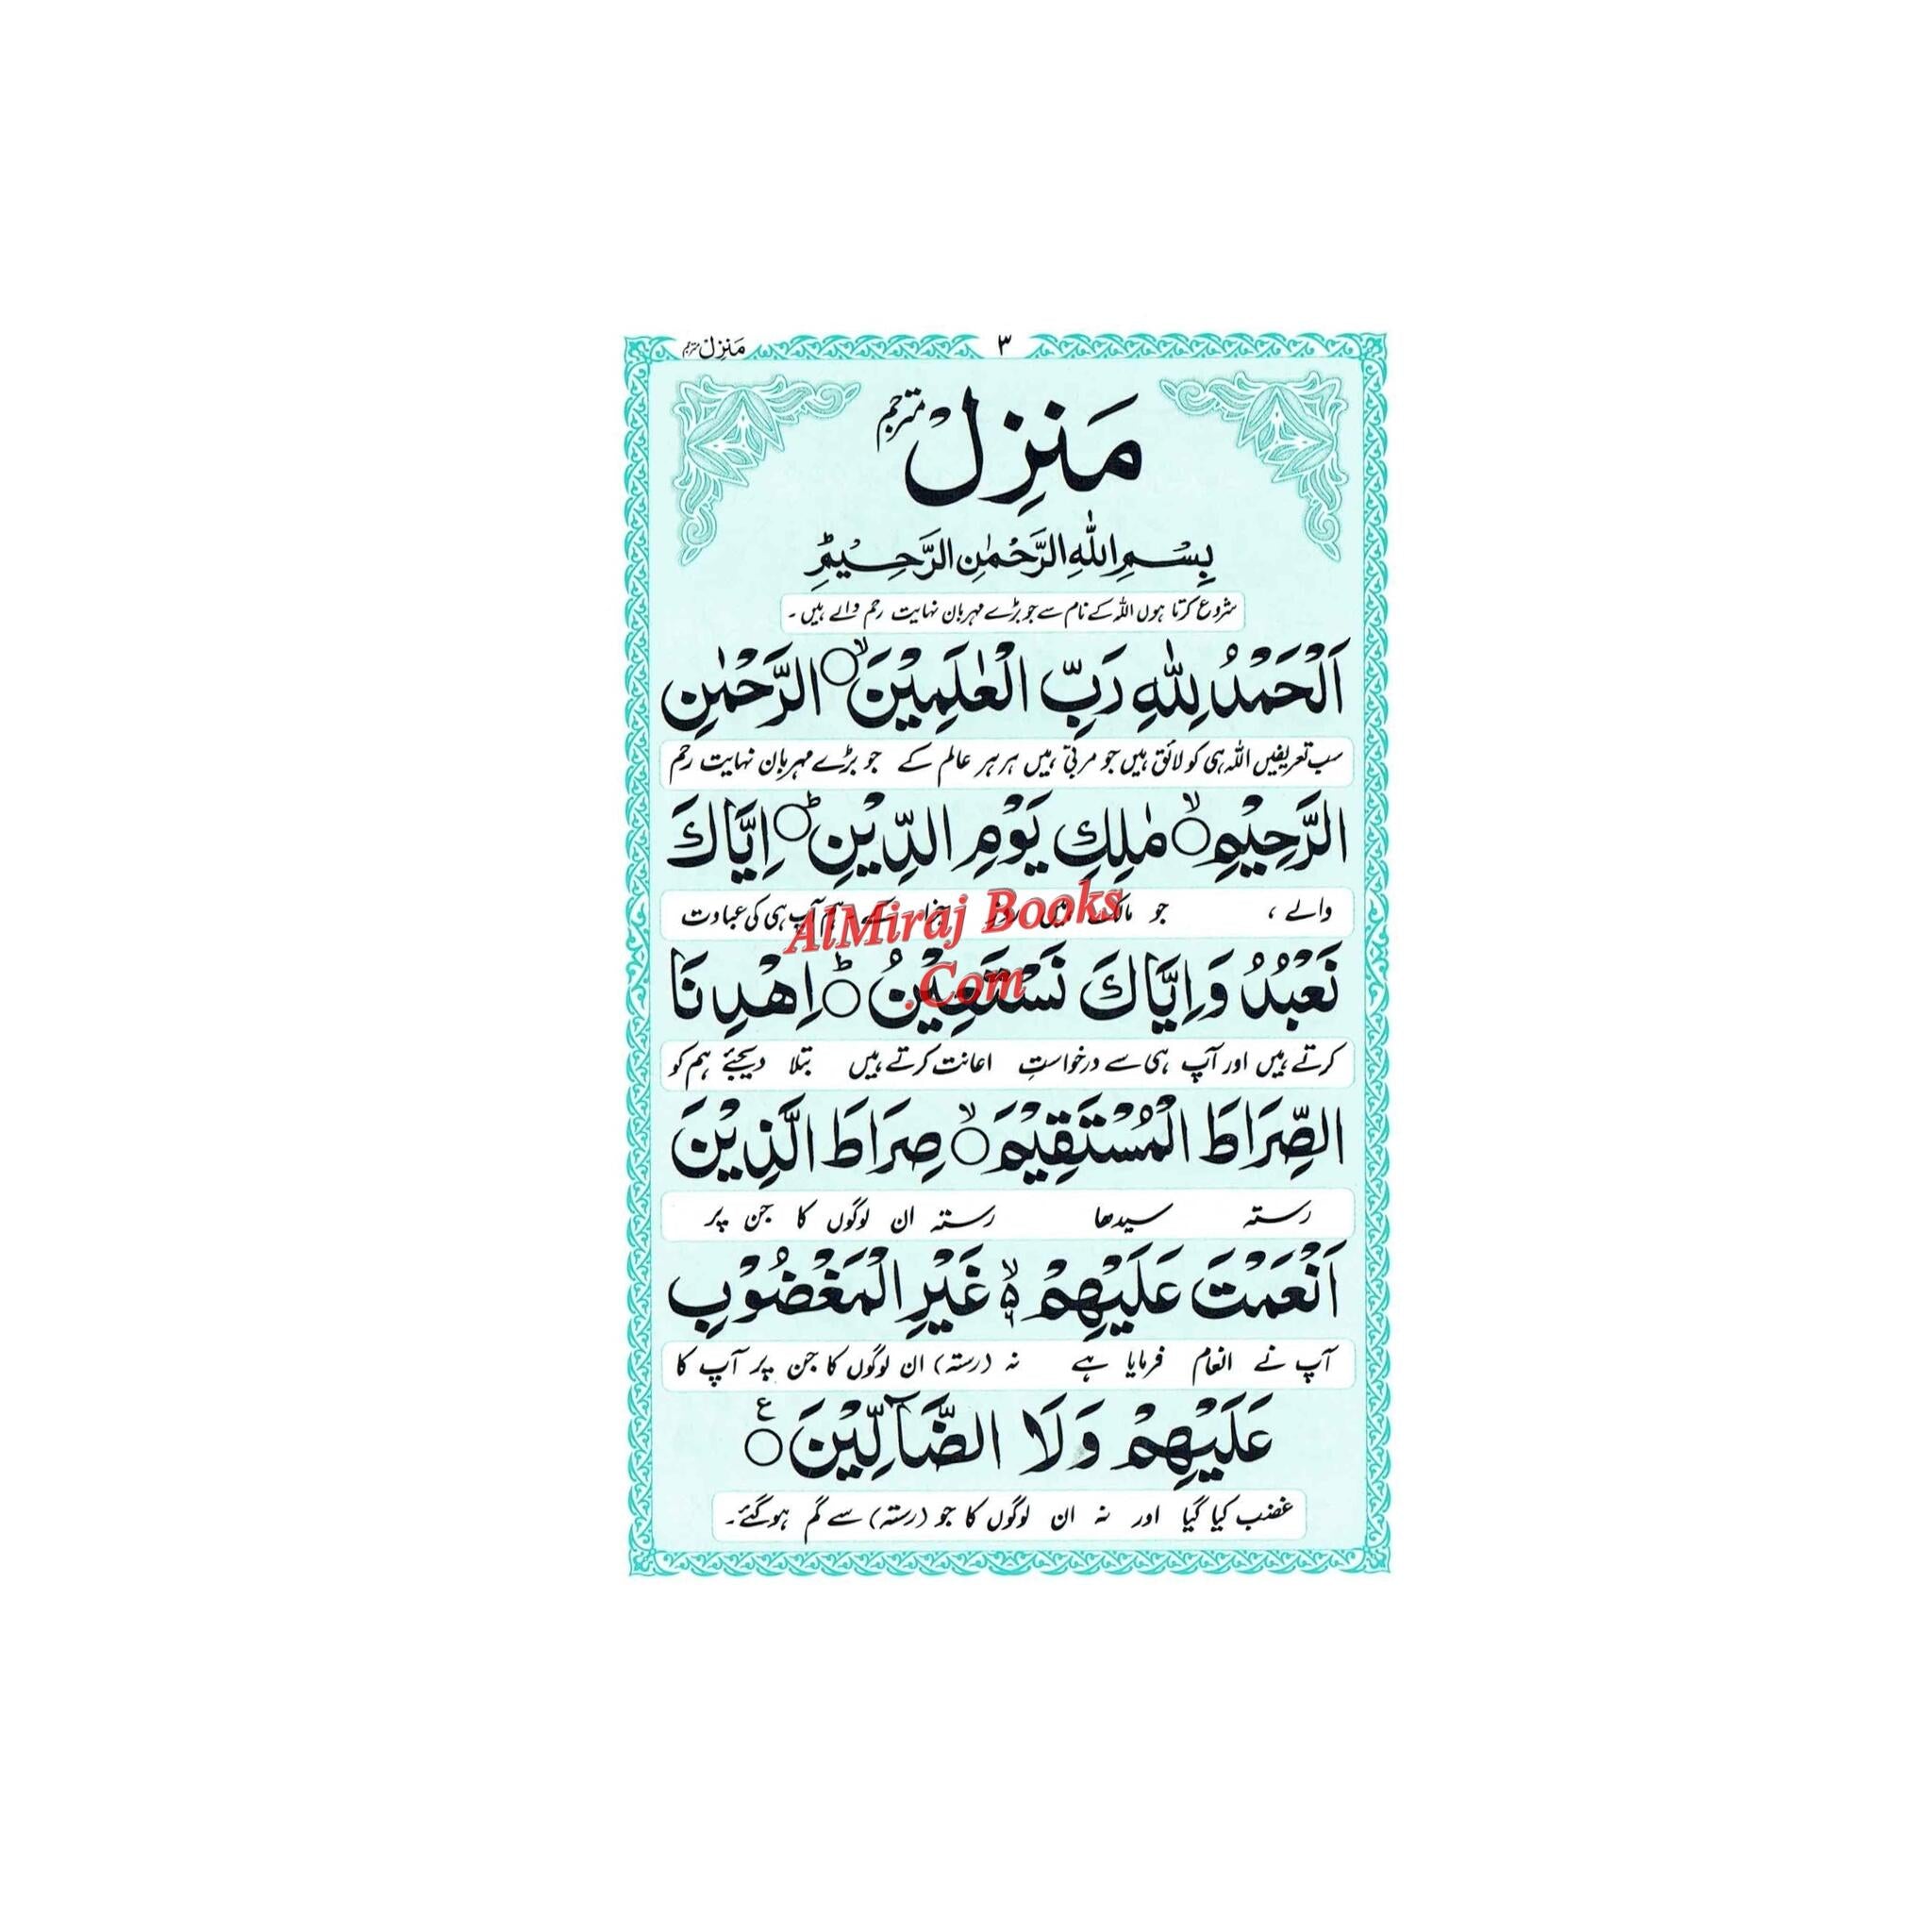 منزل مترجم ۳
مَنزِلْ مترجم
بِسْمِ اللّٰهِ الرَّحْمٰنِ الرَّحِیْمِؕ
شروع کرتا ہوں اللہ کے نام سے جو بڑے مہربان نہایت رحم والے ہیں۔
اَلْحَمْدُ لِلّٰهِ رَبِّ الْعٰلَمِیْنَۙ○ الرَّحْمٰنِ
سب تعریفیں اللہ ہی کو لائق ہیں جو مربّی ہیں ہر ہر عالم کے جو بڑے مہربان نہایت رحم
الرَّحِیْمِۙ○ مٰلِكِ یَوْمِ الدِّیْنِؕ○ اِیَّاكَ
والے، جو مالک ہیں روز جزا کے ہم آپ ہی کی عبادت
AlMiraj Books
.Com
نَعْبُدُ وَاِیَّاكَ نَسْتَعِیْنُؕ○ اِهْدِنَا
کرتے ہیں اور آپ ہی سے درخواستِ اعانت کرتے ہیں بتلا دیجئے ہم کو
الصِّرَاطَ الْمُسْتَقِیْمَۙ○ صِرَاطَ الَّذِیْنَ
رستہ سیدھا رستہ ان لوگوں کا جن پر
اَنْعَمْتَ عَلَیْهِمْ ۙ۵ غَیْرِ الْمَغْضُوْبِ
آپ نے انعام فرمایا ہے نہ (رستہ) ان لوگوں کا جن پر آپ کا
عَلَیْهِمْ وَلَا الضَّآلِّیْنَ○ع
غضب کیا گیا اور نہ ان لوگوں کا جو (رستہ) سے گم ہوگئے۔